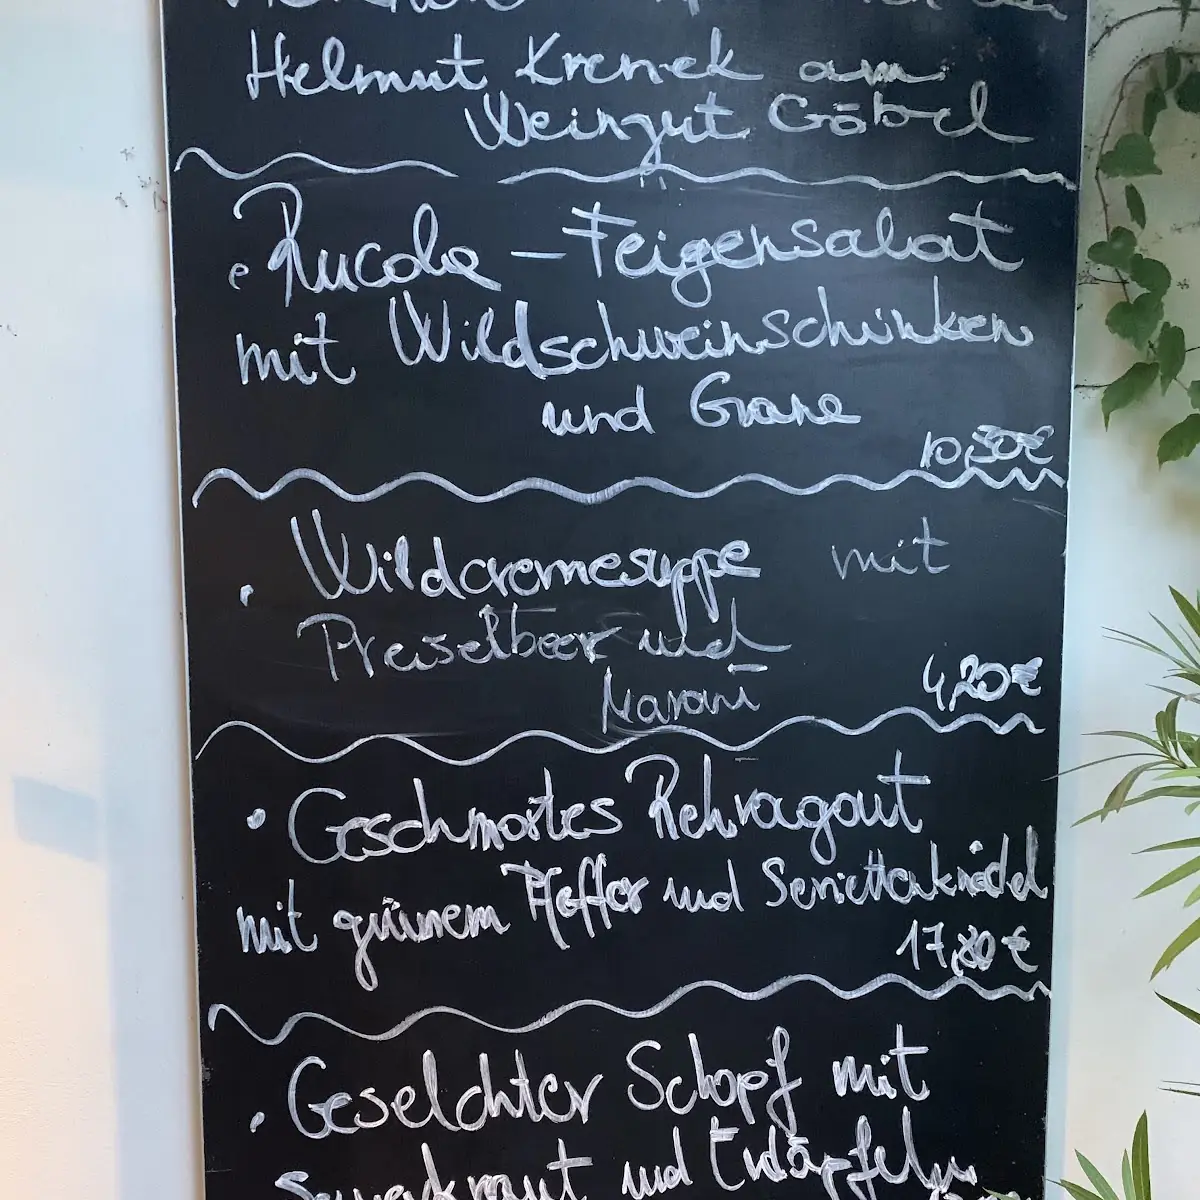 Helmut Krenek am
Weingut Göbel
Rucola - Feigensalat
mit Wildschweinschinken
und Grana
10,50€
• Wildcremesuppe mit
Preiselbeer und
Maroni
4,20€
• Geschmortes Rehragout
mit grünem Pfeffer und Serviettenknödel
17,80€
• Geselchter Schopf mit
Sauerkraut und Erdäpfeln